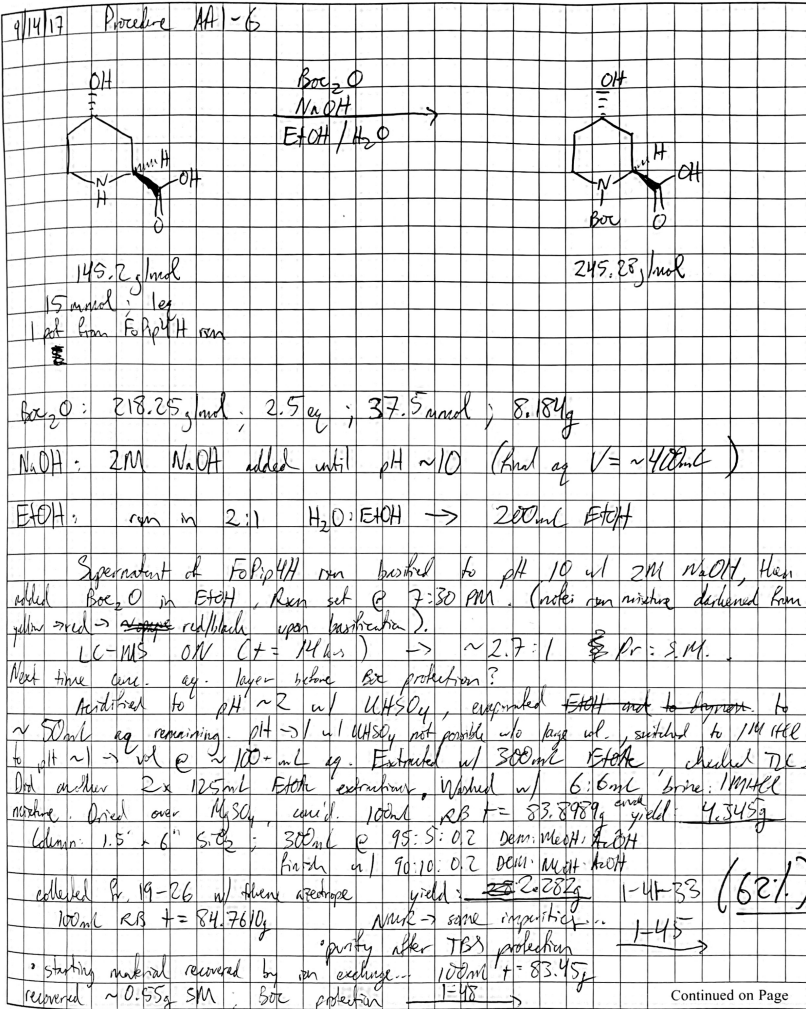 9/14/17 Procedure AA1-6
OH OH
Boc2O
NaOH
EtOH / H2O
H OH H OH
N N
H O Boc O
145.2 g/mol 245.28 g/mol
15 mmol ; 1eq
1 pot from FoPip4H rxn
Boc2O : 218.25 g/mol ; 2.5 eq ; 37.5 mmol ; 8.184g
NaOH : 2M NaOH added until pH ~10 (final aq V = ~400mL)
EtOH : rxn in 2:1 H2O:EtOH → 200mL EtOH
Supernatant of FoPip4H rxn basified to pH 10 w/ 2M NaOH, then
added Boc2O in EtOH, Rxn set @ 7:30 PM. (note: rxn mixture darkened from
yellow → red → red/black upon basification).
LC-MS ON (t = 14hrs) → ~2.7:1 Pr : S.M.
Next time conc. aq. layer before Boc protection?
Acidified to pH ~2 w/ KHSO4, evaporated EtOH and to
~ 50mL aq remaining. pH → 1 w/ KHSO4 not possible w/o large vol., switched to 1M HCl
to pH ~1 → vol @ ~100+ mL aq. Extracted w/ 300mL EtOAc, checked TLC
Did another 2x 125mL EtOAc extractions, Washed w/ 6:6mL brine:1M HCl
mixture. Dried over MgSO4, conc'd. 100mL RB t= 83.8989g crude yield: 4.345g
Column: 1.5" x 6" SiO2 ; 300mL @ 95:5:0.2 DCM:MeOH:AcOH
finish w/ 90:10:0.2 DCM:MeOH:AcOH
collected fr. 19-26 w/ toluene azeotrope yield: 2.282g 1-41-33 (62%)
100mL RB t= 84.7610g NMR → some impurities...
• purify after TBS protection 1-45
• starting material recovered by ion exchange... 100ml t= 83.45g
recovered ~0.55g SM ; Boc protection 1-48
Continued on Page